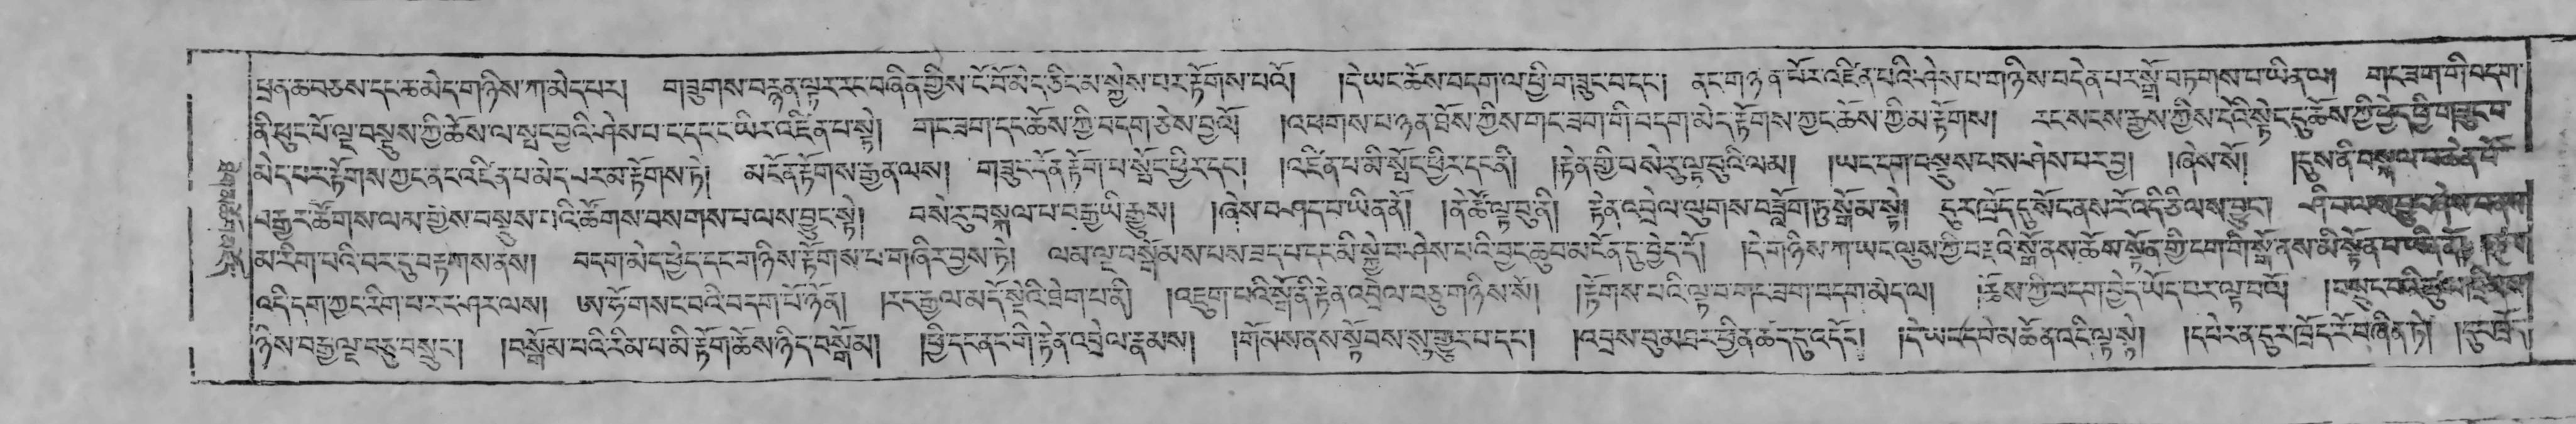 ཕྲན་ཆ་བཅས་དང་ཆ་མེད་གཉིས་ཀ་མེད་པར། གཟུགས་བརྙན་ལྟར་རང་བཞིན་གྱིས་ངོ་བོ་མེད་ཅིང་མ་སྐྱེས་པར་རྟོགས་པའོ། །དེ་ཡང་ཆོས་བདག་ལ་ཕྱི་གཟུང་བ་དང་། ནང་གཉན་པོར་འཛིན་པའི་ཤེས་པ་གཉིས་བདེན་པར་སྒྲོ་བཏགས་པ་ཡིན་ལ། གང་ཟག་གི་བདག་
ནི་ཕུང་པོ་ལྔ་བསྡུས་ཀྱི་ཆོས་ལ་སྤང་བྱའི་ཤེས་པ་ང་དང་ང་ཡིར་འཛིན་པ་སྟེ། གང་ཟག་དང་ཆོས་ཀྱི་བདག་ཅེས་བྱའོ། །འཕགས་པ་ཉན་ཐོས་ཀྱིས་གང་ཟག་གི་བདག་མེད་རྟོགས་ཀྱང་ཆོས་ཀྱི་མ་རྟོགས། རང་སངས་རྒྱས་ཀྱིས་དེའི་སྟེང་དུ་ཆོས་ཀྱི་ཕྱེད་ཕྱི་གཟུང་བ་
མེད་པར་རྟོགས་ཀྱང་ནང་འཛིན་པ་མེད་པར་མ་རྟོགས་ཏེ། མངོན་རྟོགས་རྒྱན་ལས། གཟུང་དོན་རྟོག་པ་སྤོང་ཕྱིར་དང་། །འཛིན་པ་མི་སྤོང་ཕྱིར་དང་ནི། །རྟེན་གྱི་བསེ་རུ་ལྟ་བུའི་ལམ། །ཡང་དག་བསྡུས་པས་ཤེས་པར་བྱ། །ཞེས་སོ། །དུས་ནི་བསྐལ་བ་ཆེན་པོ་
བརྒྱར་ཚོགས་ལམ་གྱིས་བསྡུས་པའི་ཚོགས་བསགས་པ་ལས་བྱུང་སྟེ། བསེ་རུ་བསྐལ་པ་བརྒྱ་ཡི་རྒྱུས། །ཞེས་བཤད་པ་ཡིན་ནོ། །ནེ་ཙོ་ལྟ་བུ་ནི། རྟེན་འབྲེལ་ལུགས་བཟློག་ཏུ་སྒོམ་སྟེ། དུར་ཁྲོད་དུ་སོང་ནས་རོ་འདི་ཅི་ལས་བྱུང་། ཤི་བ་ལས་བྱུང་ཤེས་པ་ནས་
མ་རིག་པའི་བར་དུ་བརྟགས་ནས། བདག་མེད་ཕྱེད་དང་གཉིས་རྟོགས་པ་གཞིར་བྱས་ཏེ། ལམ་ལྔ་བསྒོམས་པས་ཟད་པ་དང་མི་སྐྱེ་བ་ཤེས་པའི་བྱང་ཆུབ་མངོན་དུ་བྱེད་དོ། །དེ་གཉིས་ཀ་ཡང་ལུས་ཀྱི་བརྡའི་སྒོ་ནས་ཆོས་སྟོན་གྱི་ངག་གི་སྒོ་ནས་མི་སྟོན་པ་ཡིན་ནོ།
འདི་དག་ཀྱང་རིག་པ་རང་ཤར་ལས། ཨ་ཧོ་གསང་བའི་བདག་པོ་ཉོན། །རང་རྒྱལ་མདོ་སྡེའི་ཐེག་པ་ནི། །འཇུག་པའི་སྒོ་ནི་རྟེན་འབྲེལ་བཅུ་གཉིས་སོ། །རྟོགས་པའི་ལྟ་བ་གང་ཟག་བདག་མེད་ལ། །ཆོས་ཀྱི་བདག་བྱེད་ཡོད་པར་ལྟ་བའོ། །བསྲུང་བའི་
ཉིས་བརྒྱ་ལྔ་བཅུ་བསྲུང་། །བསྒོམ་པའི་རིམ་པ་མི་རྟོག་ཆོས་ཉིད་བསྒོམ། །ཕྱི་དང་ནང་གི་རྟེན་འབྲེལ་རྣམས། །གོམས་ནས་སྟོབས་སུ་གྱུར་པ་དང་། །འབྲས་བུ་མཐར་ཕྱིན་ཚད་དུ་འདོད། །དེ་ཡང་དཔེ་མཚོན་འདི་ལྟ་སྟེ། །དཔེར་ན་དུར་ཁྲོད་རོ་བཞིན་ཏེ། །དུར་ཁྲོད་